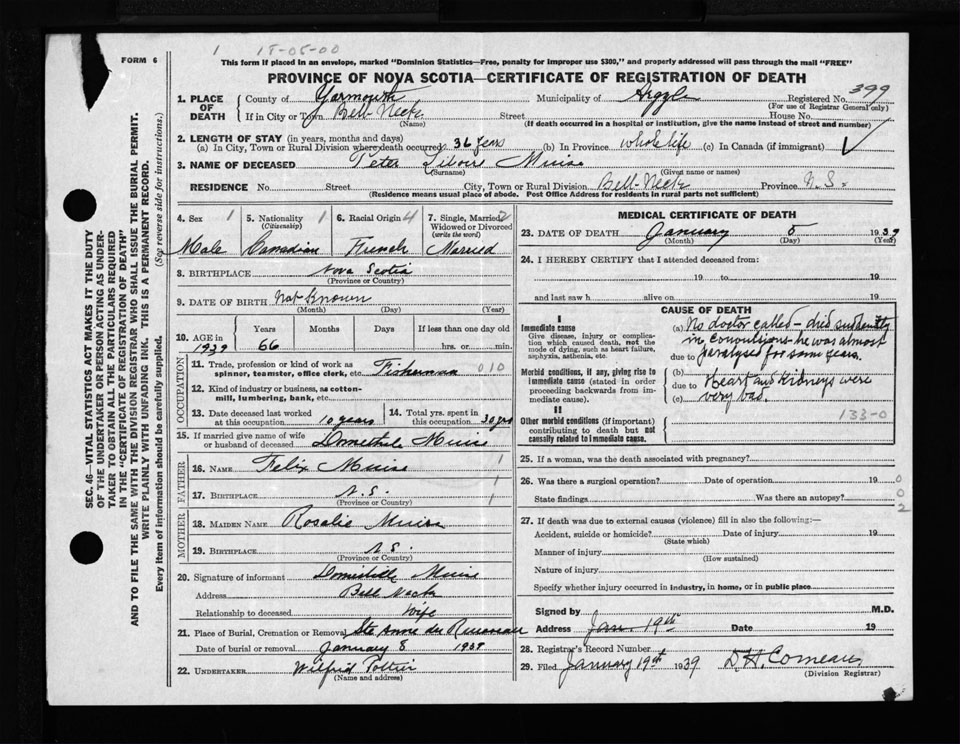 1 18-05-00
FORM 6
This form if placed in an envelope, marked "Dominion Statistics—Free, penalty for improper use $300," and properly addressed will pass through the mail "FREE"
PROVINCE OF NOVA SCOTIA—CERTIFICATE OF REGISTRATION OF DEATH
1. PLACE OF DEATH
County of Yarmouth Municipality of Argyle Registered No. 399
(For use of Registrar General only)
If in City or Town Bell-Neck Street House No.
(Name) (If death occurred in a hospital or institution, give the name instead of street and number)
2. LENGTH OF STAY (in years, months and days)
(a) In City, Town or Rural Division where death occurred 36 years (b) In Province whole life (c) In Canada (if immigrant)
3. NAME OF DECEASED Peter Muise
(Surname) (Given name or names)
RESIDENCE No. Street City, Town or Rural Division Bell-Neck Province N.S.
(Residence means usual place of abode. Post Office Address for residents in rural parts not sufficient)
4. Sex 1 5. Nationality 1 6. Racial Origin 4 7. Single, Married, 2
(Citizenship) Widowed or Divorced
(write the word)
Male Canadian French Married
8. BIRTHPLACE Nova Scotia
(Province or Country)
9. DATE OF BIRTH Not Known
(Month) (Day) (Year)
10. AGE in Years Months Days If less than one day old
1939 66 hrs. or min.
OCCUPATION
11. Trade, profession or kind of work as
spinner, teamster, office clerk, etc. Fisherman 010
12. Kind of industry or business, as cotton-
mill, lumbering, bank, etc.
13. Date deceased last worked
at this occupation 10 years
14. Total yrs. spent in
this occupation 30 yrs
15. If married give name of wife
or husband of deceased Muise
FATHER
16. NAME Felix Muise 1
17. BIRTHPLACE N.S. 1
(Province or Country)
MOTHER
18. MAIDEN NAME Rosalie Muise
19. BIRTHPLACE N.S.
(Province or Country)
20. Signature of informant Muise
Address Bell Neck
Relationship to deceased Wife
21. Place of Burial, Cremation or Removal Ste Anne du Ruisseau
Date of burial or removal January 8 1939
22. UNDERTAKER Wilfrid Pottier
(Name and address)
MEDICAL CERTIFICATE OF DEATH
23. DATE OF DEATH January 5 1939
(Month) (Day) (Year)
24. I HEREBY CERTIFY that I attended deceased from:
19 to 19
and last saw h alive on 19
CAUSE OF DEATH
I
Immediate cause
Give disease, injury or complication
which caused death, not the
mode of dying, such as heart failure,
asphyxia, asthenia, etc.
(a) No doctor called - died suddenly
in convulsions - he was almost
due to paralysed for some years.
Morbid conditions, if any, giving rise to
immediate cause (stated in order
proceeding backwards from immediate
cause).
(b)
due to Heart and Kidneys were
(c) very bad.
II
Other morbid conditions (if important)
contributing to death but not
causally related to immediate cause.
133-0
25. If a woman, was the death associated with pregnancy?
26. Was there a surgical operation? Date of operation 19 0
State findings Was there an autopsy? 0
2
27. If death was due to external causes (violence) fill in also the following:—
Accident, suicide or homicide? Date of injury 19
(State which)
Manner of injury
(How sustained)
Nature of injury
Specify whether injury occurred in industry, in home, or in public place
Signed by M.D.
Address Jan. 19th Date 19
28. Registrar's Record Number
29. Filed January 19th 1939 D. H. Comeau
(Division Registrar)
SEC. 46—VITAL STATISTICS ACT MAKES IT THE DUTY
OF THE UNDERTAKER OR PERSON ACTING AS UNDERTAKER
TO OBTAIN ALL THE PARTICULARS REQUIRED
IN THE "CERTIFICATE OF REGISTRATION OF DEATH"
AND TO FILE THE SAME WITH THE DIVISION REGISTRAR WHO SHALL ISSUE THE BURIAL PERMIT.
WRITE PLAINLY WITH UNFADING INK. THIS IS A PERMANENT RECORD.
Every item of information should be carefully supplied. (See reverse side for instructions.)